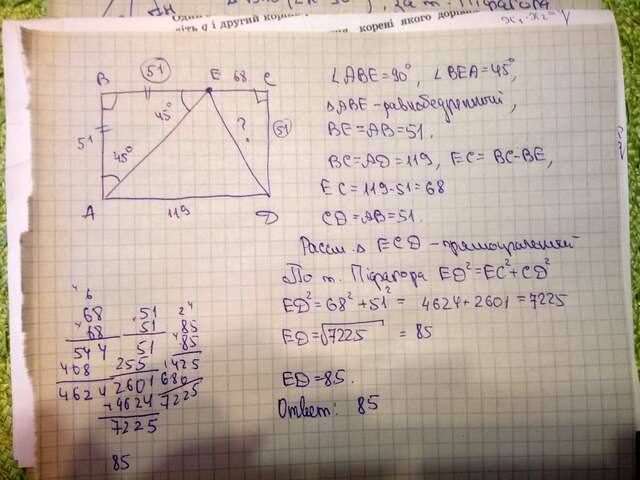 x₁·x₂=
B 51 E 68 C
45°
51
?
51
45°
A 119 D
∠ABE=90°, ∠BEA=45°
△ABE-равнобедренный,
BE=AB=51.
BC=AD=119, EC=BC-BE,
EC=119-51=68
CD=AB=51.
Рассм. △ ECD-прямоугольный
По т. Піфагора ED²=EC²+CD²
ED²=68²+51²= 4624+2601=7225
ED=√7225 = 85
ED=85.
Ответ: 85
6
68
68
544
408
4624
51
51
51
255
2601
+4624
7225
2 4
85
85
425
680
7225
85